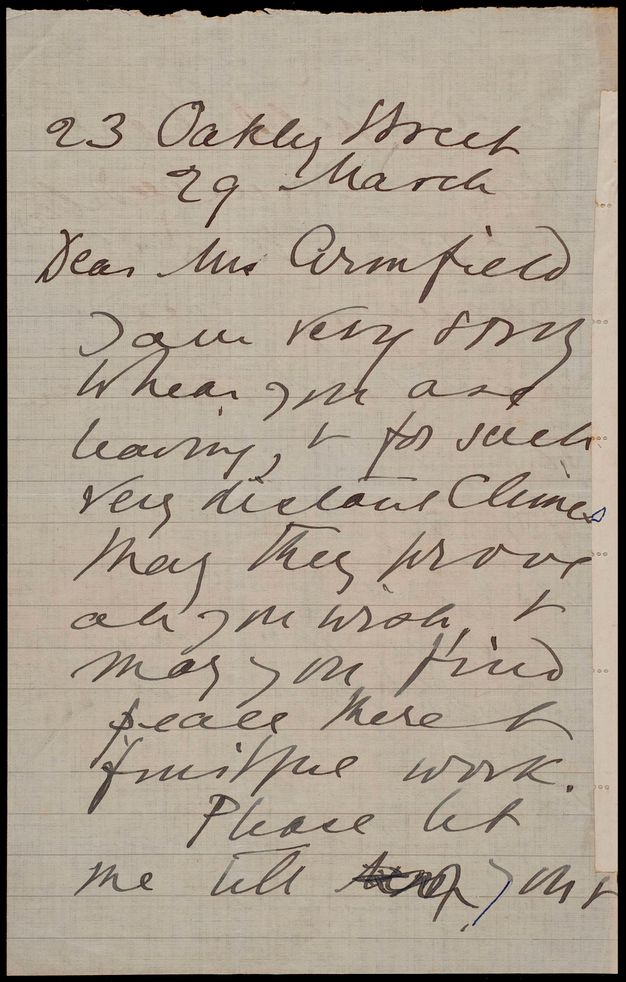 23 Oakley Street
29 March
Dear Mrs Armfield
I am very sorry
to hear you are
leaving, & for such
very distant Climes
May they prove
all you wish, &
may you find
peace there &
fruitful work.
Please let
me tell you, &